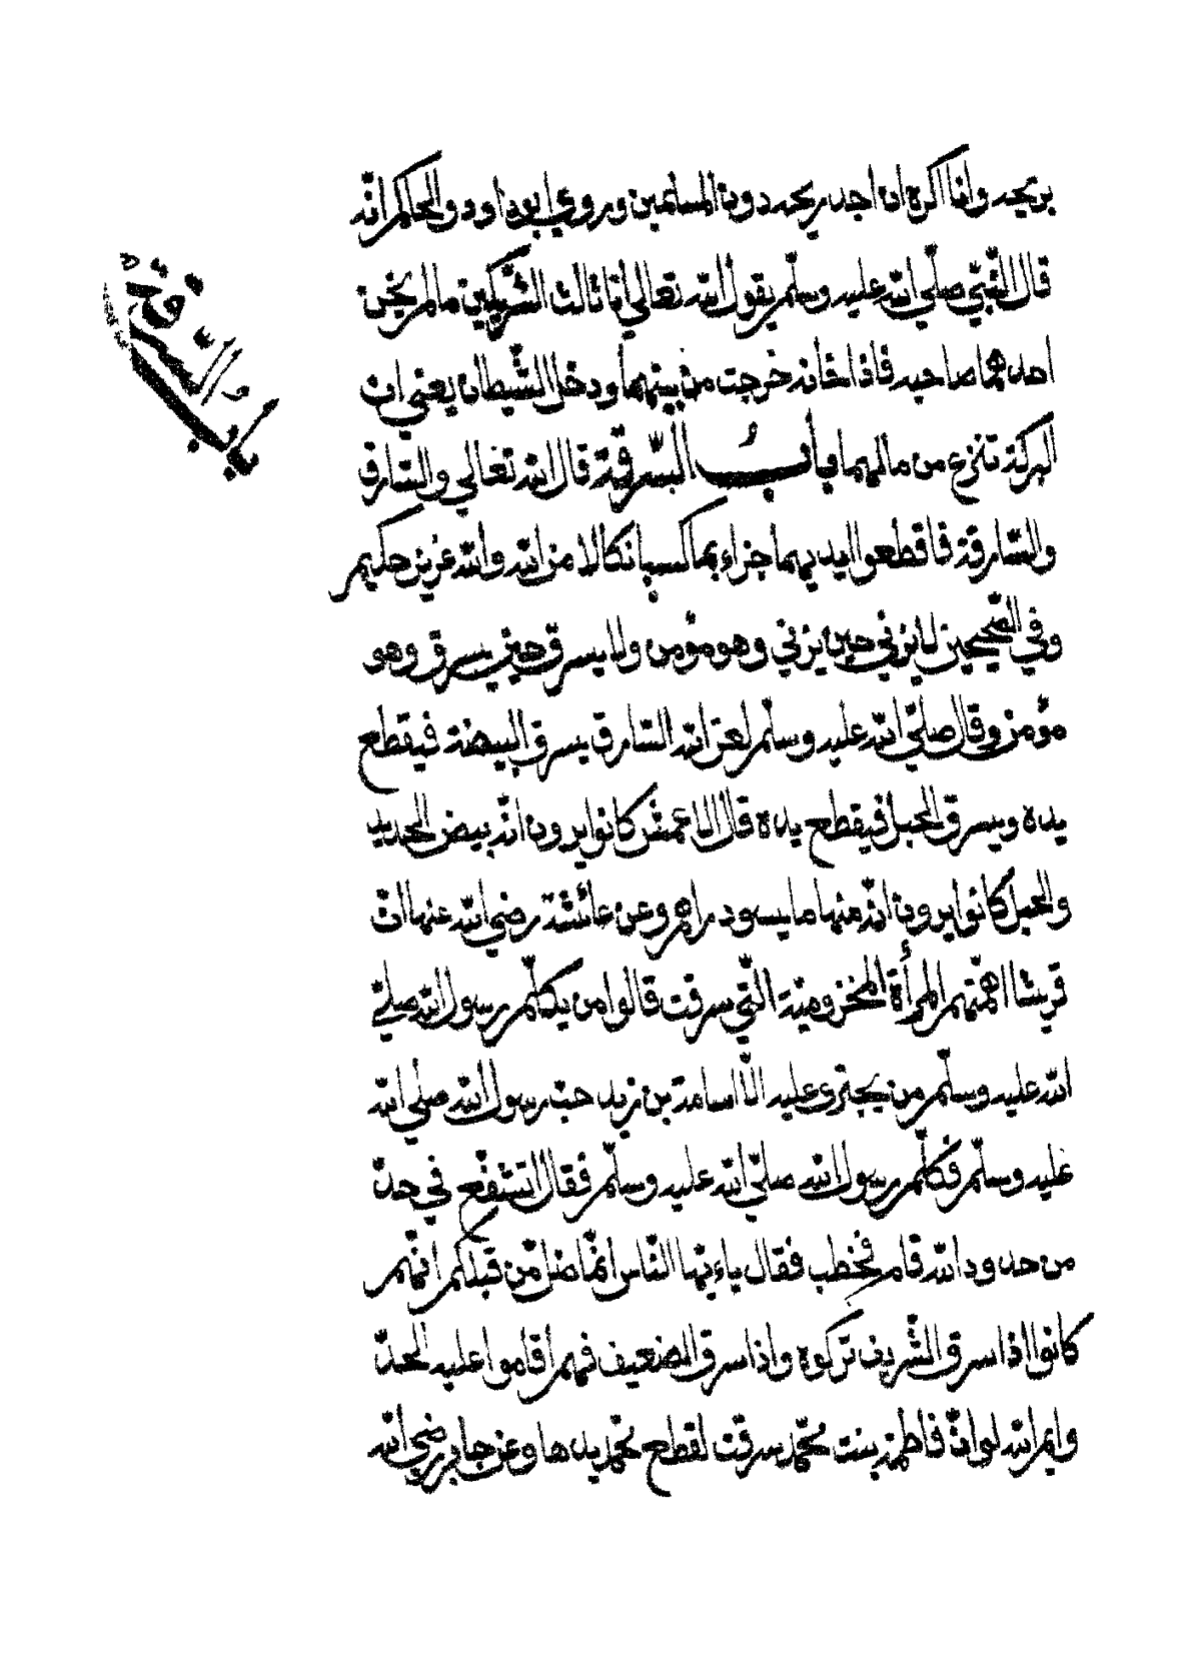 بريحه وانا اكره ان اجد ريحه دون المسلمين وروي ابوداود والحاكم انّه
قال النّبيّ صلّي اللّه عليه وسلّم يقول اللّه تعالي أنا ثالث الشّريكين مالم يخن
احدهما صاحبه فاذا خانه خرجت من بينهما ودخل الشّيطان يعني ان
البركة تنزع من مالهما بابُ السّرقة قال اللّه تعالي والسّارق
والسّارقة فاقطعوا ايديهما جزاء بما كسبا نكالا من اللّه واللّه عزيز حكيم
وفي الصّحيحين لا يزني حين يزني وهو مؤمن ولا يسرق حين يسرق وهو
مؤمن وقال صلّي اللّه عليه وسلّم لعن اللّه السّارق يسرق البيضة فيقطع
يده ويسرق الحبل فيقطع يده قال الاعمش كانوا يرون انّه بيض الحديد
والحبل كانوا يرون انّه منها ما يسود دراهم وعن عائشة رضي اللّه عنها انّ
قريشا اهمّتهم المرأة المخزوميّة الّتي سرقت قالوا من يكلّم رسول اللّه صلّي
اللّه عليه وسلّم من يجترئ عليه الّا اسامة بن زيد حبّ رسول اللّه صلي اللّه
عليه وسلّم فكلّم رسول اللّه صلّي اللّه عليه وسلّم فقال اتشفع في حدّ
من حدود اللّه قام فخطب فقال ياءيّها النّاس انّما ضلّ من قبلكم انّهم
كانوا اذا سرق الشّريف تركوه واذا سرق الضعيف فيهم أقاموا عليه الحدّ
وايم اللّه لو انّ فاطمة بنت محمّد سرقت لقطع محمّد يدها وعن جابر رضي اللّه
باب السّرقة